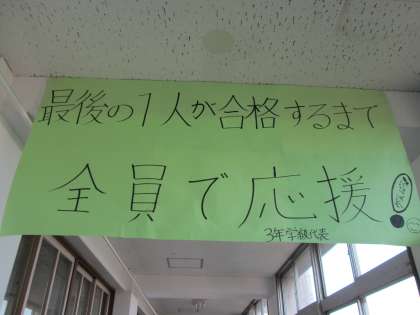 最後の1人が合格するまで
全員で応援
3年学級代表